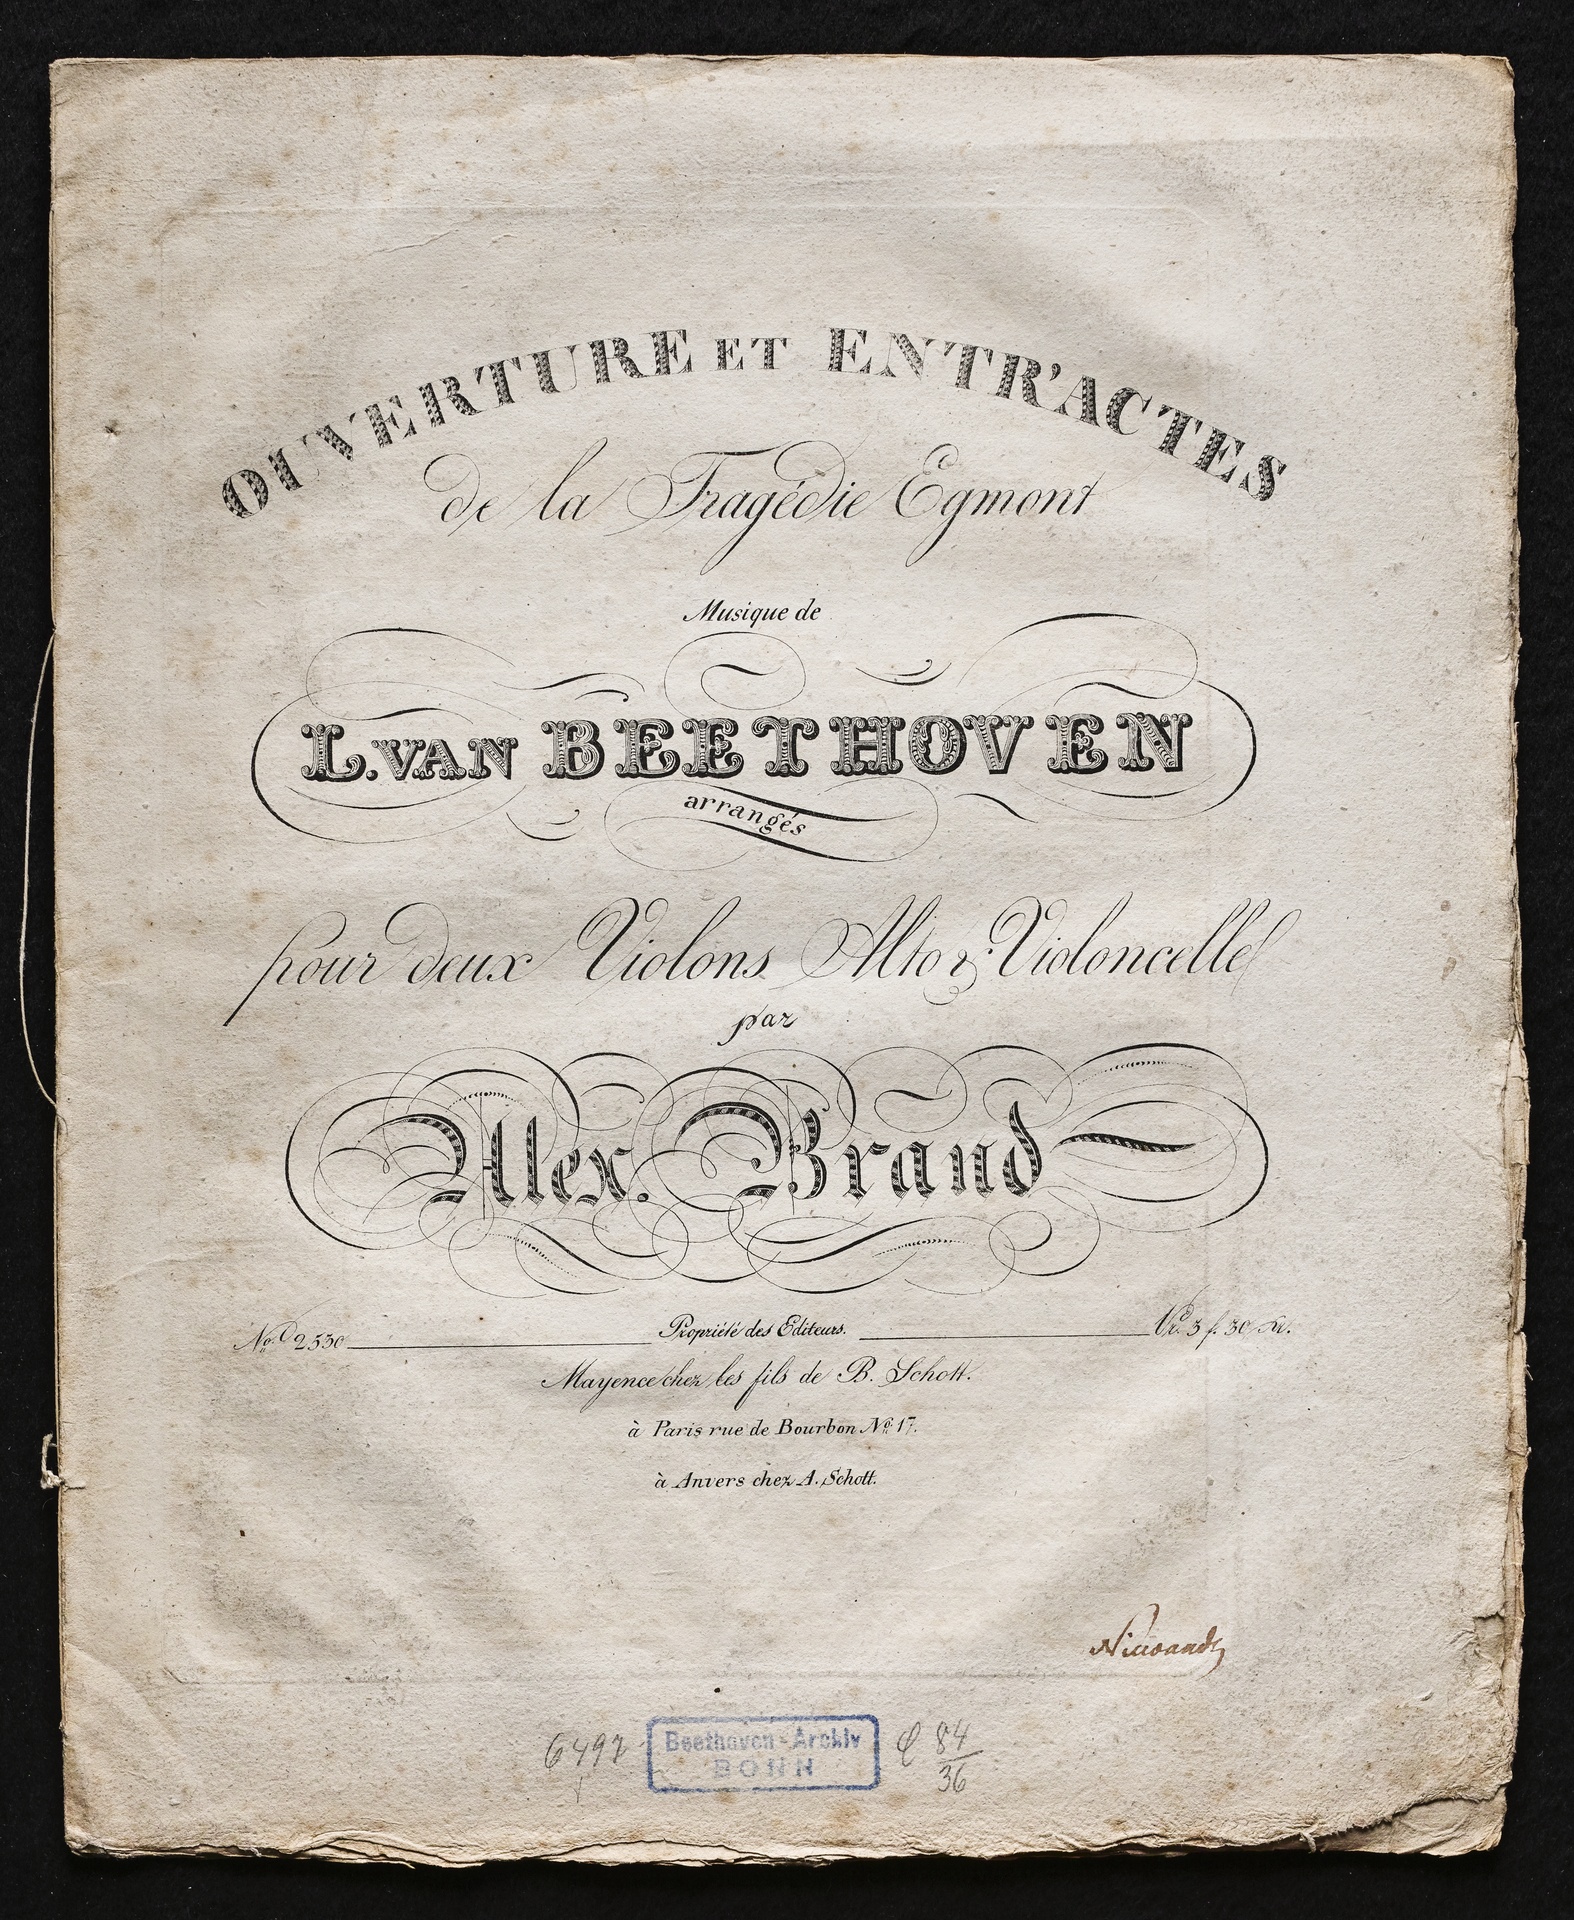 OUVERTURE ET ENTR'ACTES
de la Tragédie Egmont
Musique de
L. VAN BEETHOVEN
arrangés
pour deux Violons Alto & Violoncelle
par
Alex. Brand
No. 2530 Propriété des Editeurs. Pr. 3 f. 30 xr.
Mayence chez les fils de B. Schott.
à Paris rue de Bourbon No. 17.
à Anvers chez A. Schott.
6497 Beethoven-Archiv C 84
BONN 36